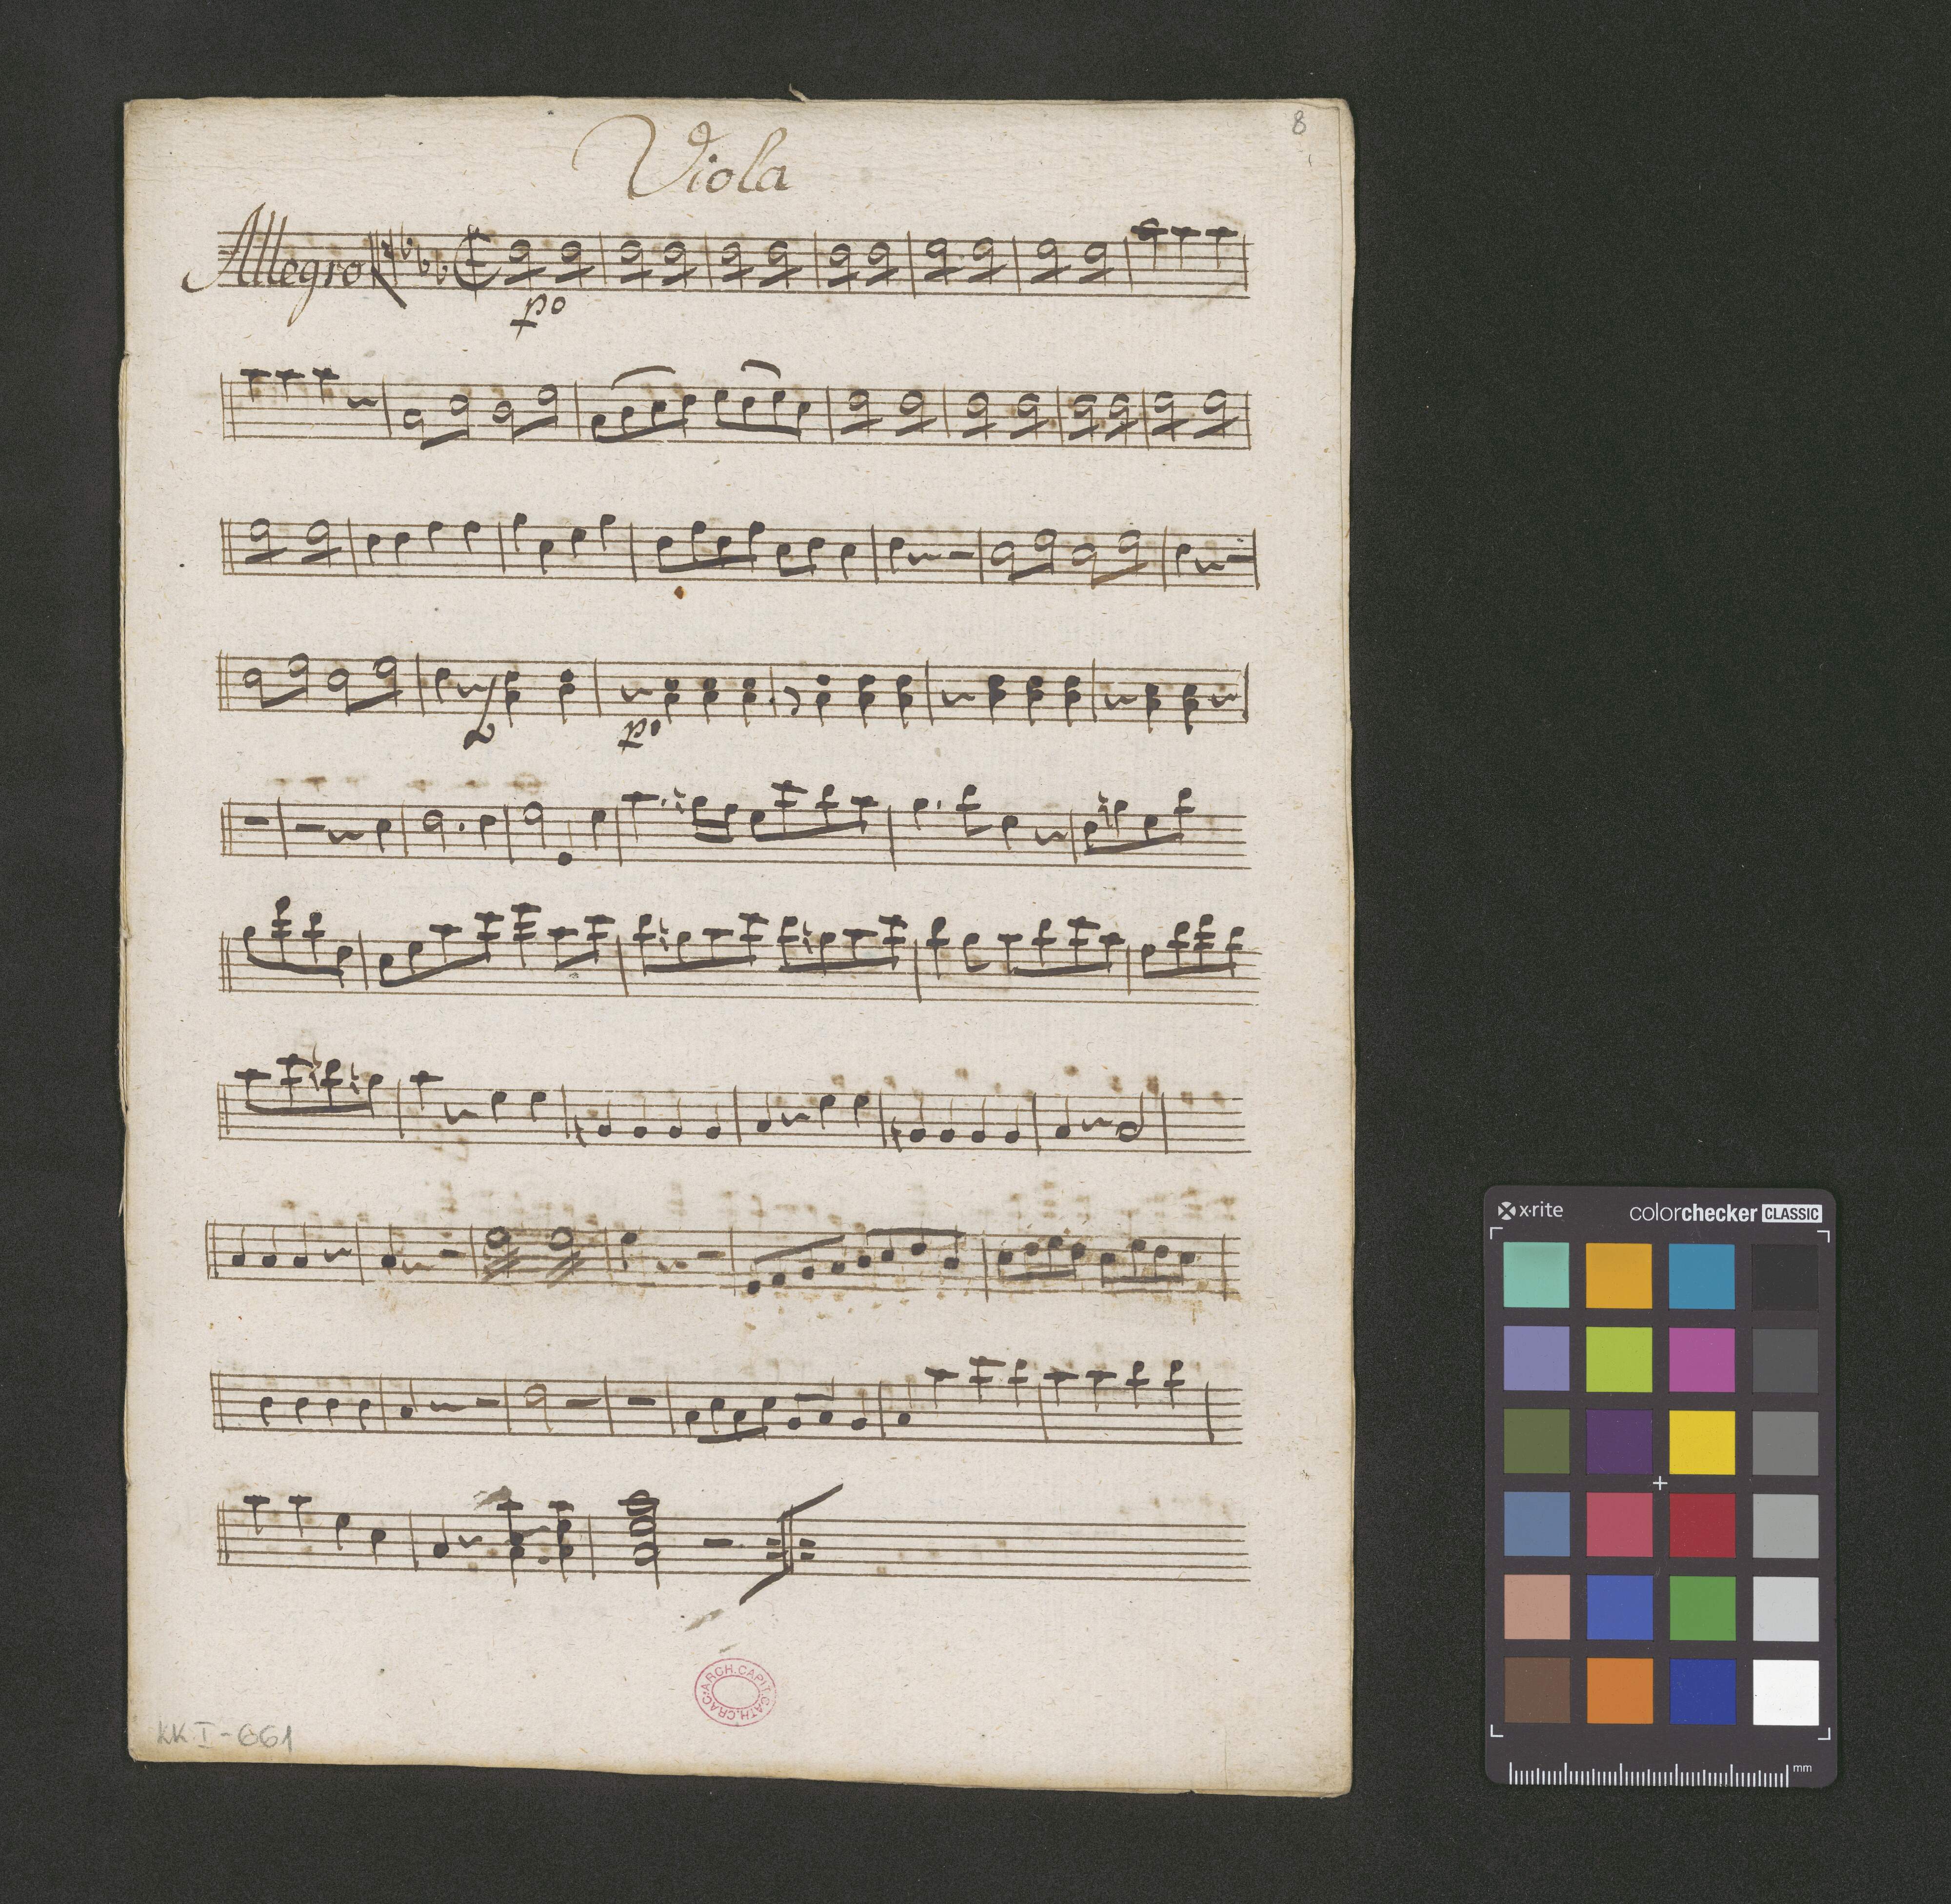 8
Viola
Allegro
po
f
po
ARCH.CAPIT.CATH.CRAC.
KK I-661
x-rite colorchecker CLASSIC
mm